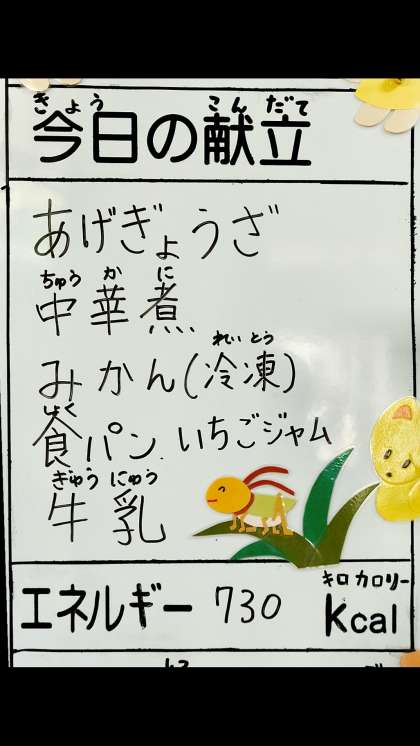 きょう こんだて
今日の献立
あげぎょうざ
ちゅう か に
中華煮
れいとう
みかん(冷凍)
しょく
食パン いちごジャム
ぎゅう にゅう
牛乳
キロカロリー
エネルギー 730 Kcal